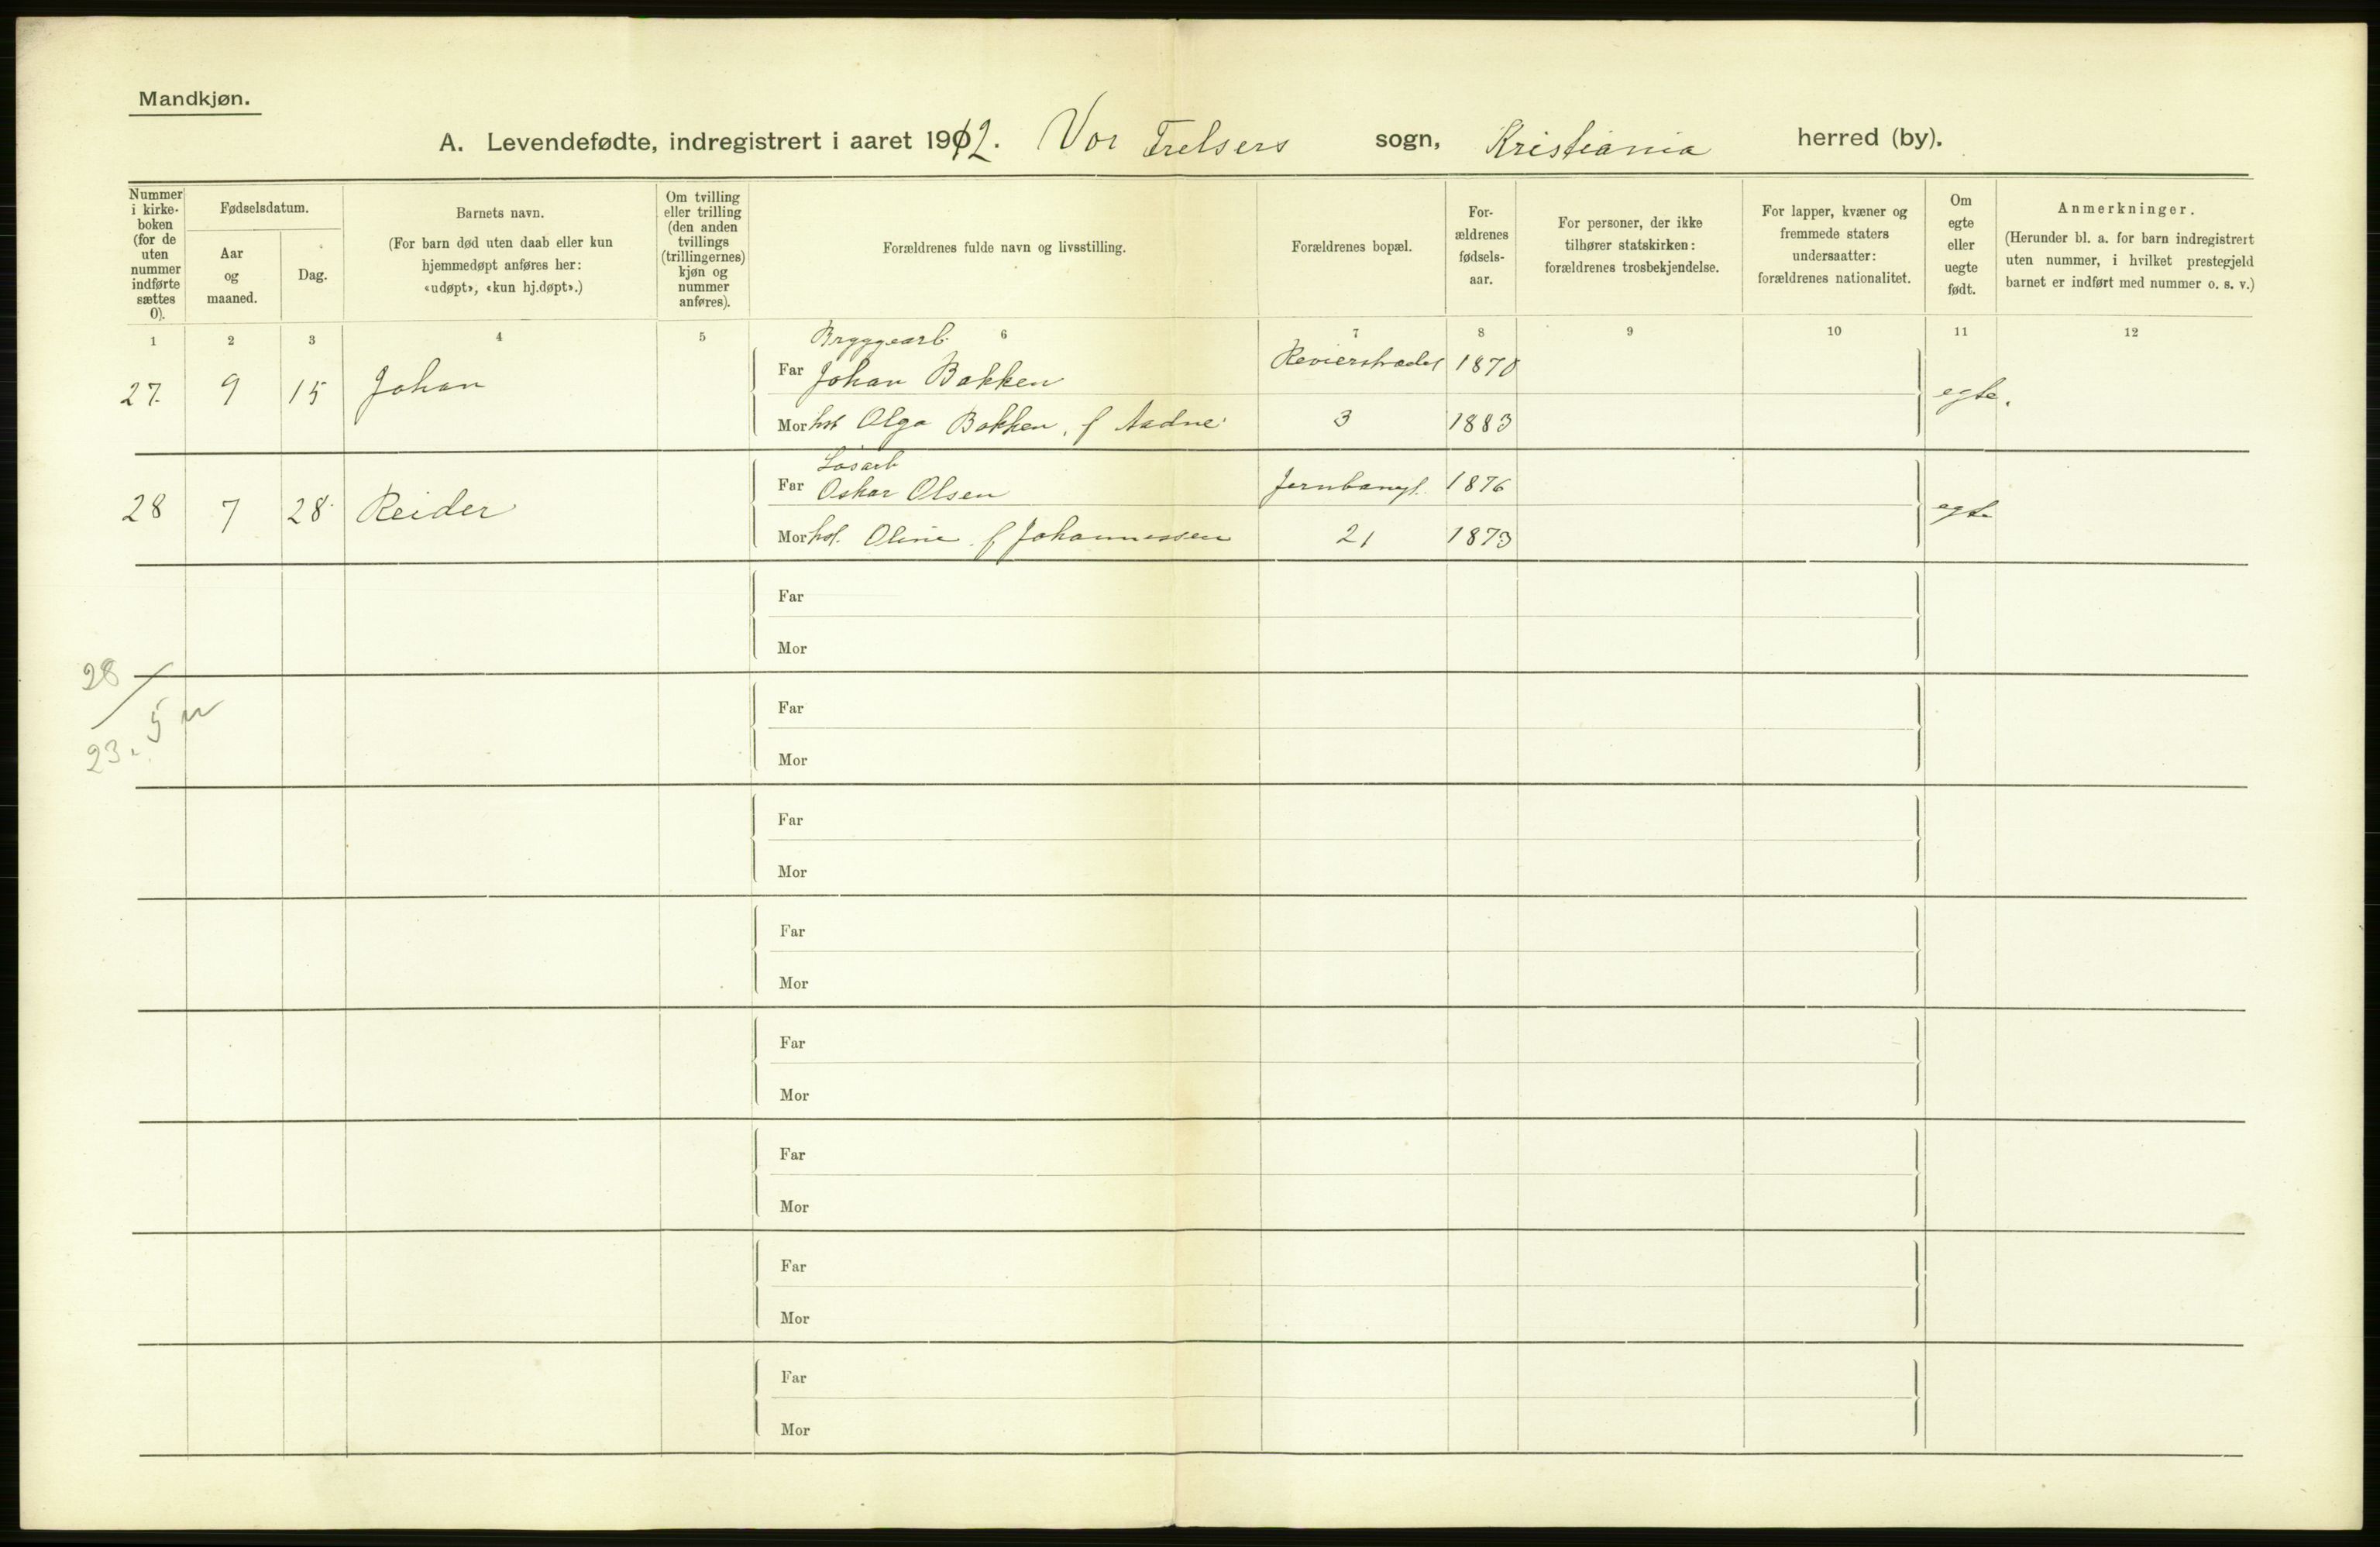 Mandkjøn.
A. Levendefødte, indregistrert i aaret 1912. Vor Frelsers sogn, Kristiania herred (by).
Nummer i kirke-boken (for de uten nummer indførte sættes 0).
Fødselsdatum.
Aar og maaned.
Dag.
Barnets navn.
(For barn død uten daab eller kun hjemmedøpt anføres her: «udøpt», «kun hj.døpt».)
Om tvilling eller trilling (den anden tvillings (trillingernes) kjøn og nummer anføres).
Forældrenes fulde navn og livsstilling.
Forældrenes bopæl.
For-ældrenes fødsels-aar.
For personer, der ikke tilhører statskirken: forældrenes trosbekjendelse.
For lapper, kvæner og fremmede staters undersaatter: forældrenes nationalitet.
Om egte eller uegte født.
Anmerkninger.
(Herunder bl. a. for barn indregistrert uten nummer, i hvilket prestegjeld barnet er indført med nummer o. s. v.)
1 2 3 4 5 6 7 8 9 10 11 12
Bryggearb.
27. 9 15 Johan Far Johan Bakken Revierstrædet 1870 egte.
Mor hst Olga Bakken, f Aadne 3 1883
Løsarb
28 7 28 Reider Far Oskar Olsen Jernbanegt. 1876 egte
Mor hst. Oline f Johannessen 21 1873
Far
Mor
28
Far
5 u
Mor
23.
Far
Mor
Far
Mor
Far
Mor
Far
Mor
Far
Mor
Far
Mor